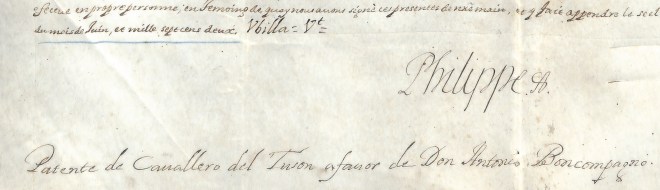 receue en propre personne, en témoing de quoy nous avons signé ces presentes de nre main, et y faict appendre le scel
du mois de Juin, ce mille sept cens deux, Vbilla = Vt =
Philippe
Patente de Cavallero del Tuson a favor de Don Antonio Boncompagno.